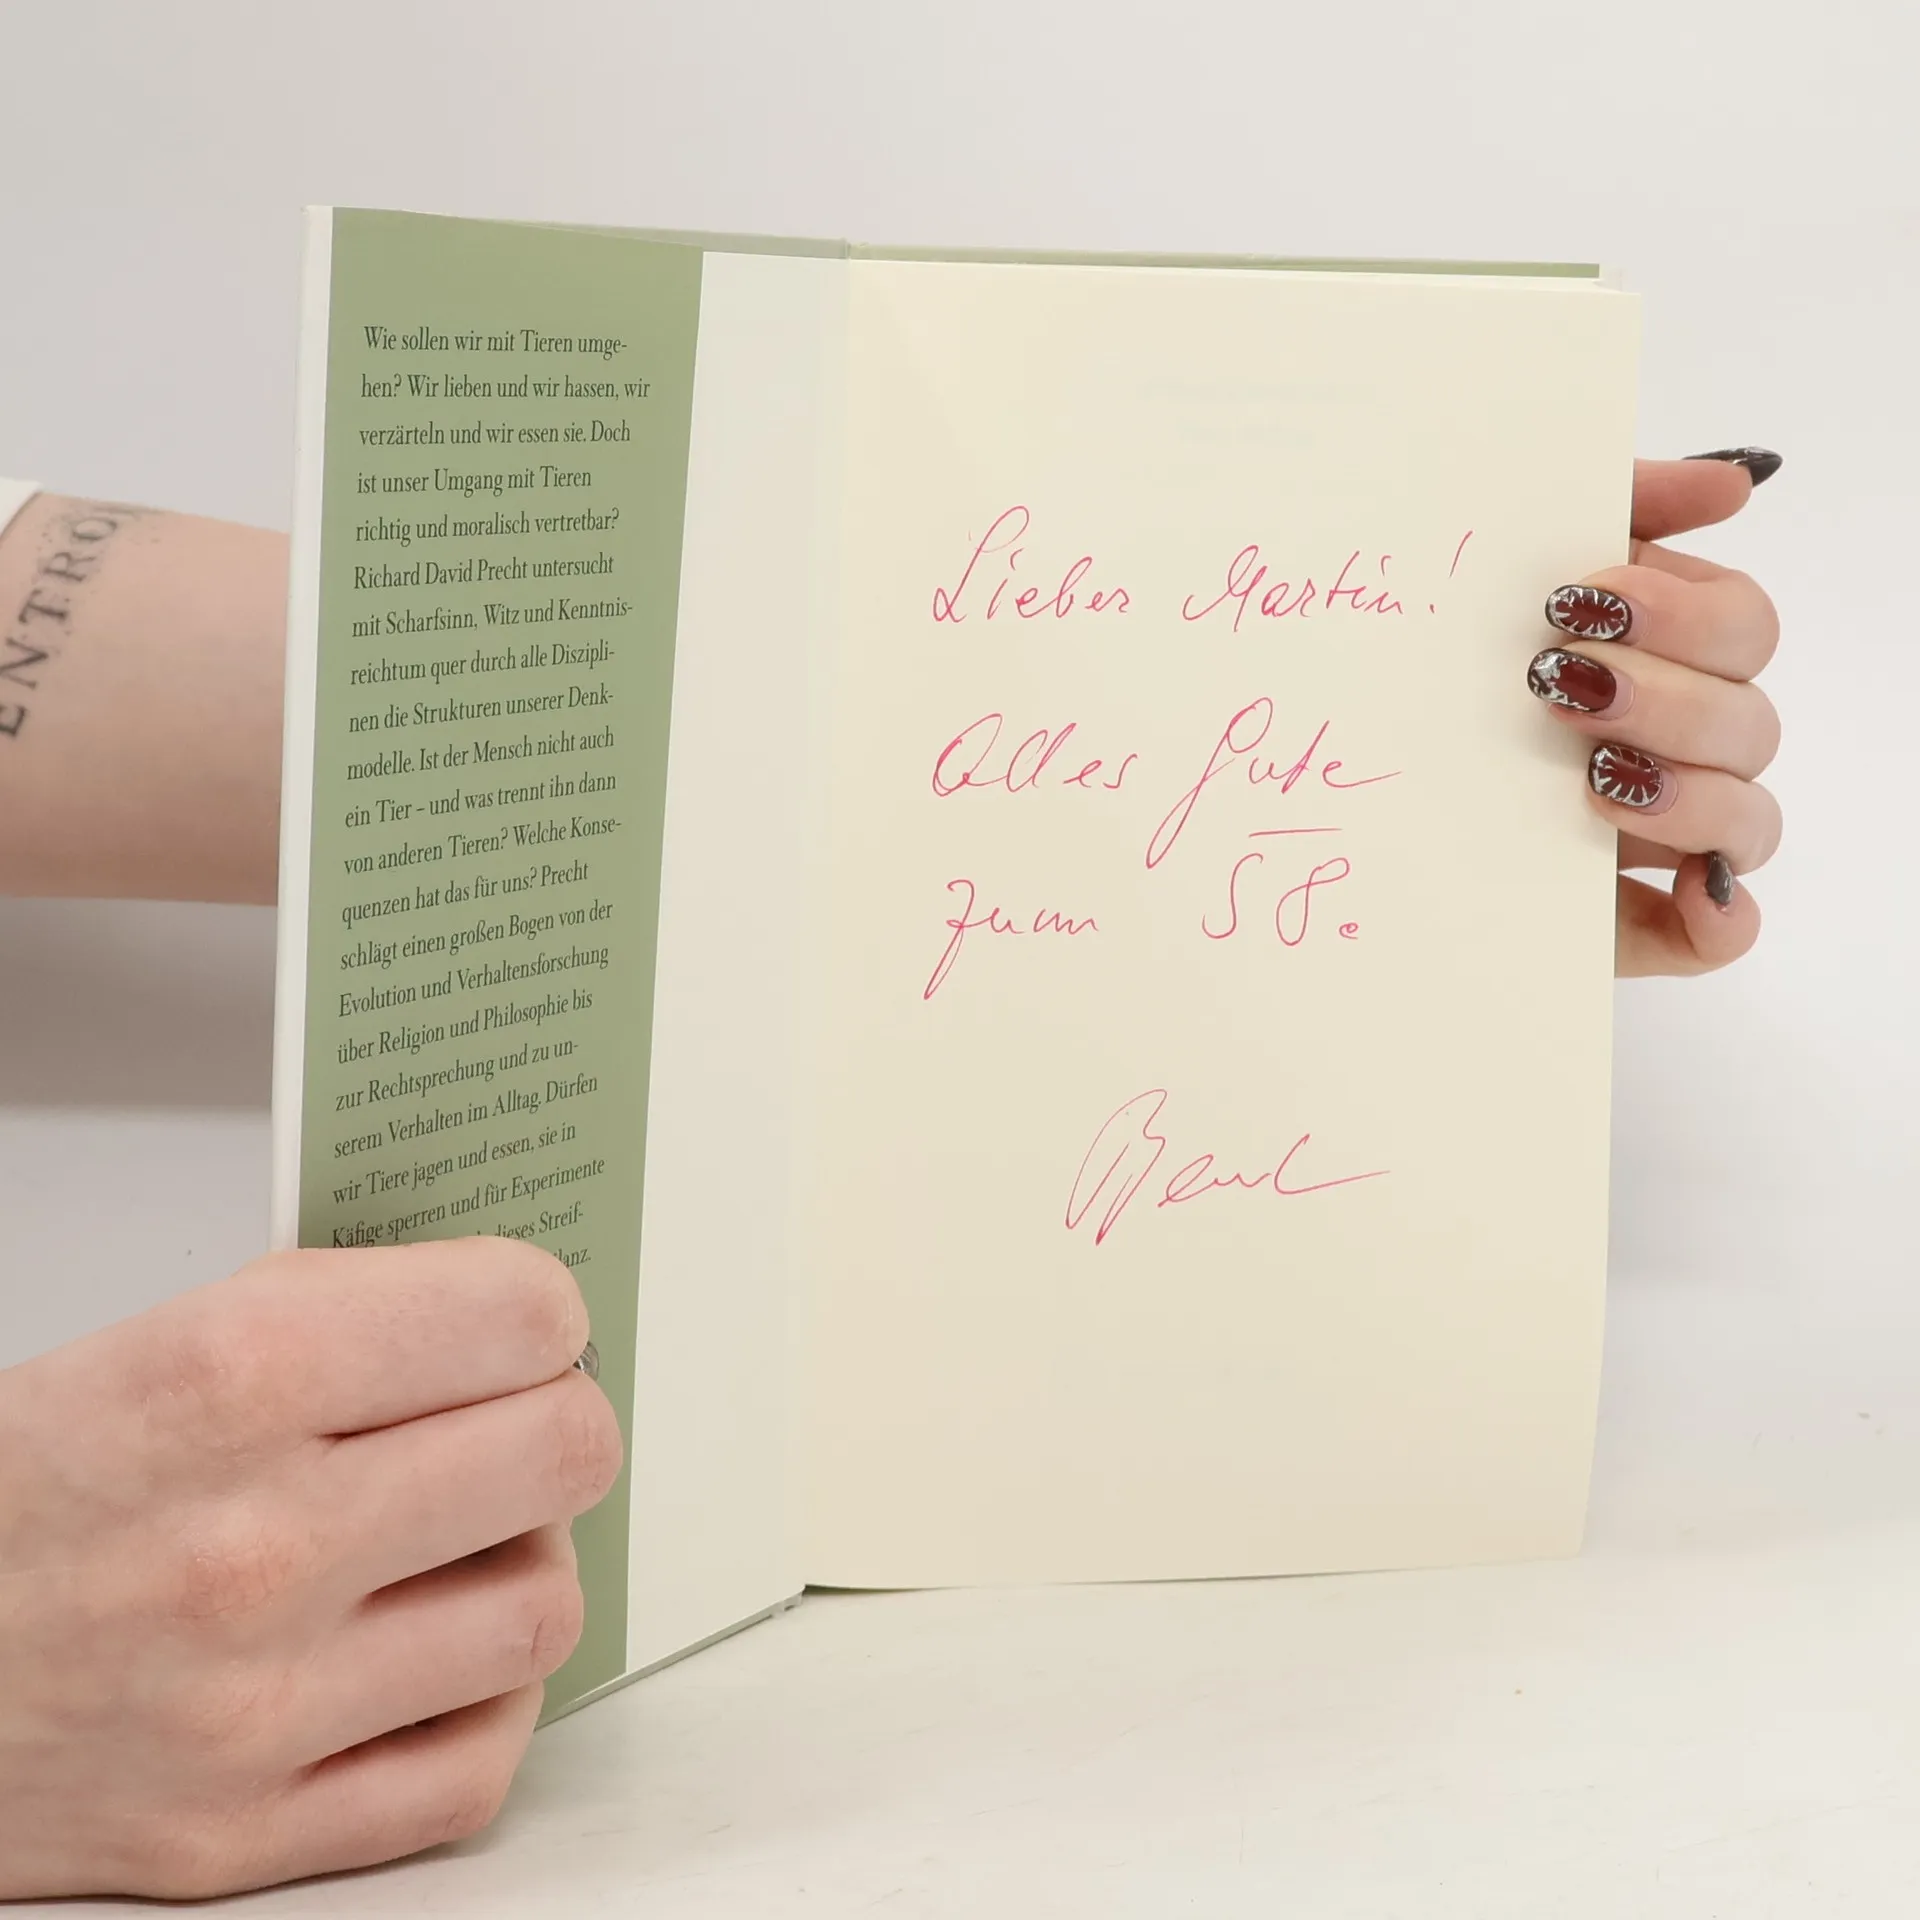 ENTRO
Wie sollen wir mit Tieren umge-
hen? Wir lieben und wir hassen, wir
verzärteln und wir essen sie. Doch
ist unser Umgang mit Tieren
richtig und moralisch vertretbar?
Richard David Precht untersucht
mit Scharfsinn, Witz und Kenntnis-
reichtum quer durch alle Diszipli-
nen die Strukturen unserer Denk-
modelle. Ist der Mensch nicht auch
ein Tier – und was trennt ihn dann
von anderen Tieren? Welche Konse-
quenzen hat das für uns? Precht
schlägt einen großen Bogen von der
Evolution und Verhaltensforschung
über Religion und Philosophie bis
zur Rechtsprechung und zu un-
serem Verhalten im Alltag. Dürfen
wir Tiere jagen und essen, sie in
Käfige sperren und für Experimente
dieses Streif-
Lieber Martin!
Alles Gute
zum 58.